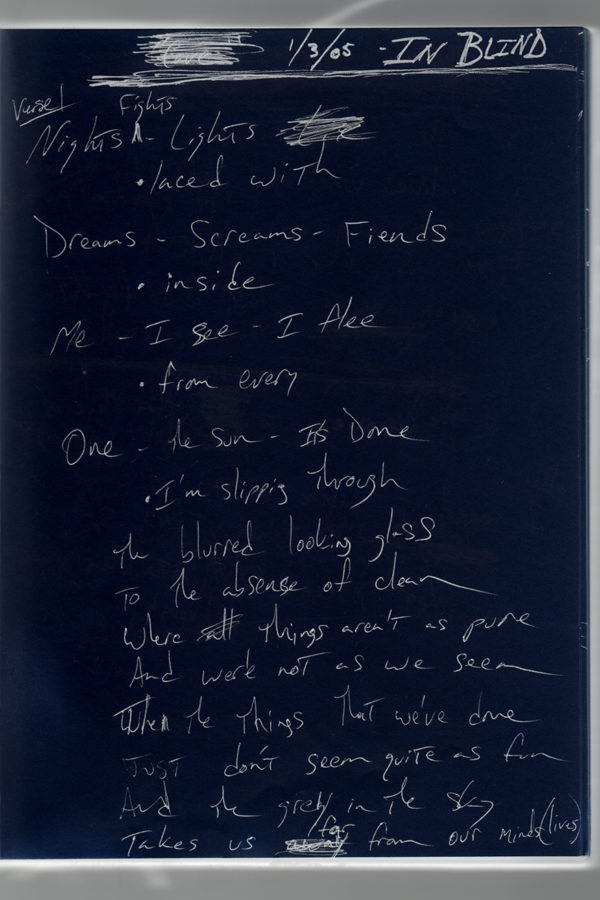 1/3/05 - IN BLIND
Verse 1
Fights
Nights ^ - Lights
• laced with
Dreams - Screams - Fiends
• inside
Me - I see - I flee
• from every
One - the sun - It's Done
• I'm slippig through
the blurred looking glass
To the absense of clean
Where things aren't as pure
And we're not as we seem
When the things that we've done
Just don't seem quite as fun
And the grey in the sky
far
Takes us from our minds (lives)